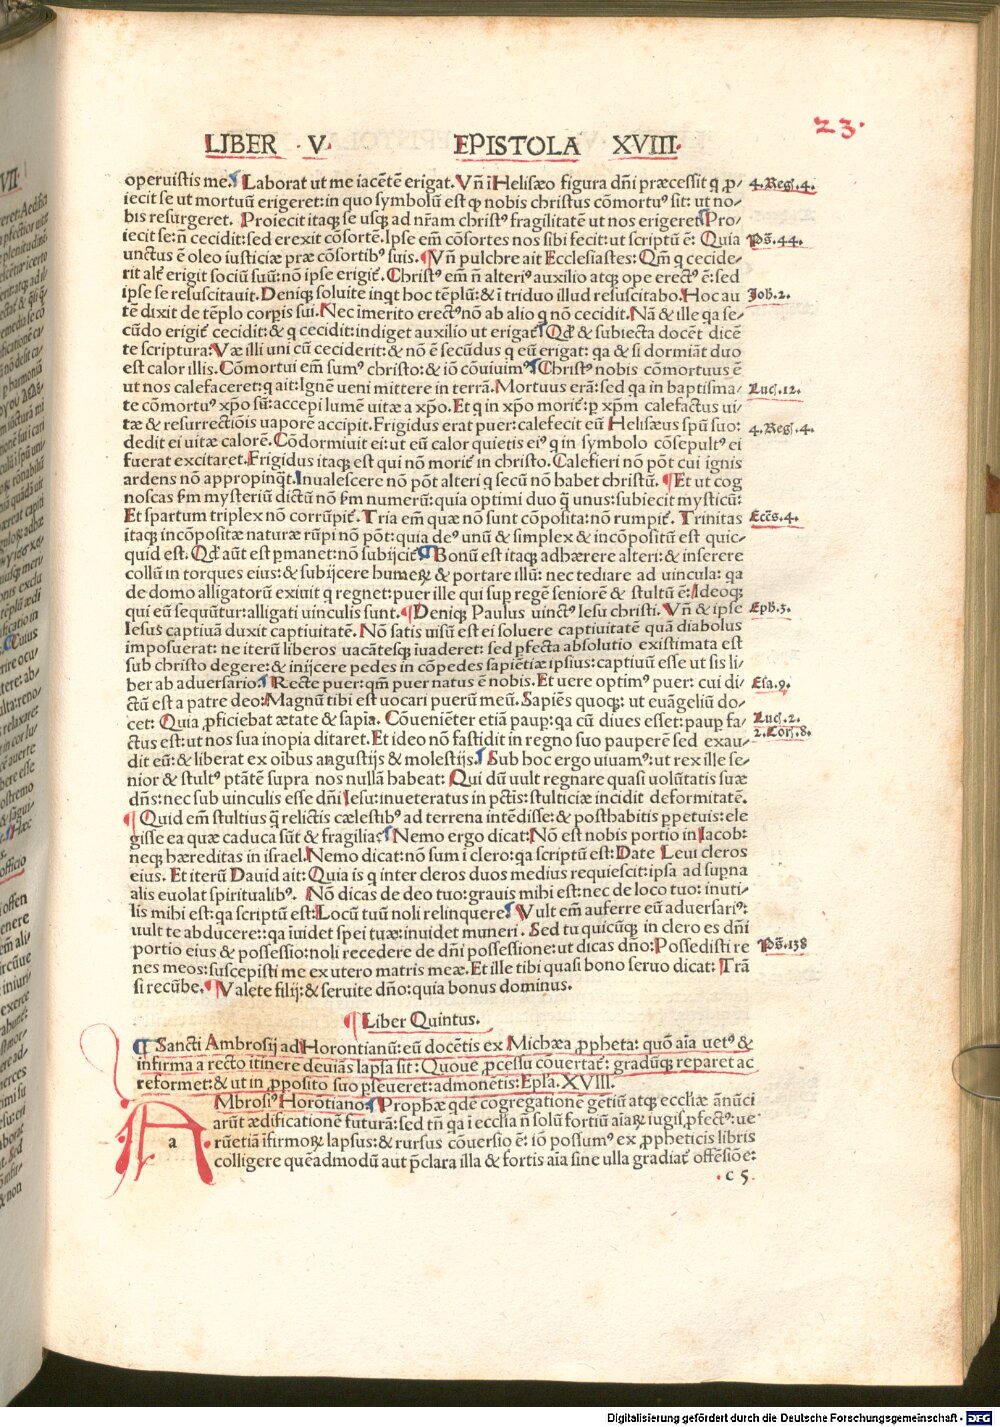 23.
LIBER ·V· EPISTOLA XVIII·
operuistis me. Laborat ut me iacẽtẽ erigat. Vñ ĩ Helisæo figura dñi præcessit q̃ ꝓ/ 4.Reg.4.
iecit se ut mortuũ erigeret: in quo symbolũ est qꝫ nobis christus cõmortuꝰ sit: ut no/
bis resurgeret. Proiecit itaqꝫ se usqꝫ ad nr̃am christꝰ fragilitatẽ ut nos erigeret. Pro/
iecit se: ñ cecidit: sed erexit cõsortẽ. Ipse em̃ cõsortes nos sibi fecit: ut scriptũ ẽ: Quia Ps̃.44.
unctus ẽ oleo iusticiæ præ cõsortibꝰ suis. ¶Vñ pulchre ait Ecclesiastes: Qm̃ q cecide-
rit alẽ erigit sociũ suũ: nõ ipse erigit̃. Christꝰ em̃ ñ alteriꝰ auxilio atqꝫ ope erectꝰ ẽ: sed
ipse se resuscitauit. Deniqꝫ soluite inqt hoc tẽplũ: & ĩ triduo illud resuscitabo. Hoc au Joh.2.
tẽ dixit de tẽplo corꝑis sui. Nec imerito erectꝰ nõ ab alio q nõ cecidit. Nã & ille qa se-
cũdo erigit̃ cecidit: & q cecidit: indiget auxilio ut erigat̃. Qd̃ & subiecta docẽt dicẽ
te scriptura: Væ illi uni cũ ceciderit: & nõ ẽ secũdus q eũ erigat: qa & si dormiãt duo
est calor illis. Cõmortui em̃ sumꝰ christo: & iõ cõuiuimꝰ. Christꝰ nobis cõmortuus ẽ
ut nos calefaceret: q ait: Ignẽ ueni mittere in terrã. Mortuus erã: sed qa in baptisma/ Luc.12.
te cõmortuꝰ xp̃o sũ: accepi lumẽ uitæ a xp̃o. Et q in xp̃o morit̃: p xp̃m calefactus ui/
tæ & resurrectiõis uaporẽ accipit. Frigidus erat puer: calefecit eũ Helisæus spũ suo: 4.Reg.4.
dedit ei uitæ calorẽ. Cõdormiuit ei: ut eũ calor quietis eiꝰ q in symbolo cõsepultꝰ ei
fuerat excitaret. Frigidus itaqꝫ est qui nõ morit̃ in christo. Calefieri nõ põt cui ignis
ardens nõ appropinq̃t. Inualescere nõ põt alteri q secũ nõ habet christũ. ¶Et ut cog
noscas fm mysteriũ dictũ nõ fm numerũ: quia optimi duo q̃ unus: subiecit mysticũ:
Et spartum triplex nõ corrũpit̃. Tria em̃ quæ nõ sunt cõposita: nõ rumpit̃. Trinitas Ecc̃s.4.
itaqꝫ incõpositæ naturæ rũpi nõ põt: quia deꝰ unũ & simplex & incõpositũ est quic-
quid est. Qd̃ aũt est pmanet: nõ subijcit̃. ¶Bonũ est itaqꝫ adhærere alteri: & inserere
collũ in torques eius: & subijcere humeꝝ & portare illũ: nec tediare ad uincula: qa
de domo alligatorũ exiuit q regnet: puer ille qui sup regẽ seniorẽ & stultũ ẽ: Ideoqꝫ
qui eũ sequũtur: alligati uinculis sunt. ¶Deniqꝫ Paulus uinctꝰ Iesu christi. Vñ & ipse Eph.3.
Iesus captiuã duxit captiuitatẽ. Nõ satis uisũ est ei soluere captiuitatẽ quã diabolus
imposuerat: ne iterũ liberos uacãtesqꝫ iuaderet: sed pfecta absolutio existimata est
sub christo degere: & inijcere pedes in cõpedes sapiẽtiæ ipsius: captiuũ esse ut sis li/
ber ab aduersario. Recte puer: qm̃ puer natus ẽ nobis. Et uere optimꝰ puer: cui di/ Esa.9.
ctũ est a patre deo: Magnũ tibi est uocari puerũ meũ. Sapiẽs quoqꝫ: ut euãgeliũ do-
cet: Quia ꝓficiebat ætate & sapia. Cõueniẽter etiã paup: qa cũ diues esset: paup fa/ Luc.2.
ctus est: ut nos sua inopia ditaret. Et ideo nõ fastidit in regno suo pauperẽ sed exau/ 2.Cor.8.
dit eũ: & liberat ex oibus angustijs & molestijs. Sub hoc ergo uiuamꝰ: ut rex ille se-
nior & stultꝰ ptãtẽ supra nos nullã habeat: Qui dũ uult regnare quasi volũtatis suæ
dñs: nec sub uinculis esse dñi Iesu: inueteratus in pctis: stulticiæ incidit deformitatẽ.
¶Quid em̃ stultius q̃ relictis cælestibꝰ ad terrena intẽdisse: & posthabitis ppetuis: ele
gisse ea quæ caduca sũt & fragilia? Nemo ergo dicat: Nõ est nobis portio in Iacob:
neqꝫ hæreditas in israel. Nemo dicat: nõ sum i clero: qa scriptũ est: Date Leui cleros
eius. Et iterũ Dauid ait: Quia is q inter cleros duos medius requiescit: ipsa ad supna
alis euolat spiritualibꝰ. Nõ dicas de deo tuo: grauis mihi est: nec de loco tuo: inuti/
lis mihi est: qa scriptũ est: Locũ tuũ noli relinquere. Vult em̃ auferre eũ aduersariꝰ:
uult te abducere:: qa ĩuidet spei tuæ: inuidet muneri. Sed tu quicũqꝫ in clero es dñi
portio eius & possessio: noli recedere de dñi possessione: ut dicas dño: Possedisti re Ps̃.138
nes meos: suscepisti me ex utero matris meæ. Et ille tibi quasi bono seruo dicat: Trã
si recũbe. ¶Valete filij: & seruite dño: quia bonus dominus.
¶Liber Quintus.
¶Sancti Ambrosij ad Horontianũ: eũ docẽtis ex Michæa ꝓpheta: quõ aia uetꝰ &
infirma a recto itinere deuiãs lapsa sit: Quoue ꝓcessu cõuertat̃: graduqꝫ reparet ac
reformet: & ut in ꝓposito suo pseueret: admonẽtis: Epl̃a. XVIII.
AMbrosiꝰ Horõtiano. Prophæ qdẽ cogregatione getiũ atqꝫ eccliæ ãnũci
arũt ædificationẽ futurã: sed tñ qa i ecclia ñ solũ fortiũ aiaꝝ iugis pfectꝰ: ue
rũetiã ĩfirmoꝝ lapsus: & rursus cõuersio ẽ: iõ possumꝰ ex ꝓppheticis libris
colligere quẽadmodũ aut pclara illa & fortis aĩa sine ulla gradiat̃ offẽsiõe:
a
·c 5·
Digitalisierung gefördert durch die Deutsche Forschungsgemeinschaft - DFG